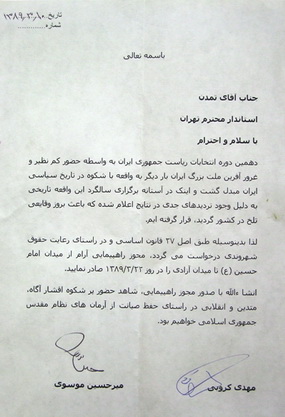 تاریخ: ۱۳۸۹/۳/۱۰
شماره:
باسمه تعالی
جناب آقای تمدن
استاندار محترم تهران
با سلام و احترام
دهمین دوره انتخابات ریاست جمهوری ایران به واسطه حضور کم نظیر و
غرور آفرین ملت بزرگ ایران بار دیگر به واقعه با شکوه در تاریخ سیاسی
ایران مبدل گشت و اینک در آستانه برگزاری سالگرد این واقعه تاریخی
به دلیل وجود تردیدهای جدی در نتایج اعلام شده که باعث بروز وقایعی
تلخ در کشور گردید، قرار گرفته ایم.
لذا بدینوسیله طبق اصل ۲۷ قانون اساسی و در راستای رعایت حقوق
شهروندی درخواست می گردد، مجوز راهپیمایی آرام از میدان امام
حسین (ع) تا میدان آزادی را در روز ۱۳۸۹/۳/۲۲ صادر نمایید.
انشاءالله با صدور مجوز راهپیمایی، شاهد حضور پر شکوه اقشار آگاه،
متدین و انقلابی در راستای حفظ صیانت از آرمان های نظام مقدس
جمهوری اسلامی خواهیم بود.
مهدی کروبی
میرحسین موسوی